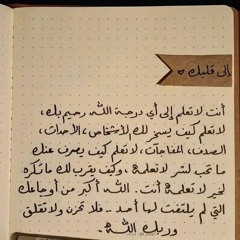 إلى قلبك ♥
أنت لا تعلم إلى أي درجة الله رحيم بك،
لا تعلم كيف يسخر لك الأشخاص، الأحداث،
الصدف، المفاجآت، لا تعلم كيف يصرف عنك
ما تحب لشر لا تعلمه، وكيف يقرب لك ما تكره
لخير لا تعلمه أنت. الله أكبر من أوجاعك
التي لم يلتفت لها أحد .. فلا تحزن ولا تقلق
وربك الله.